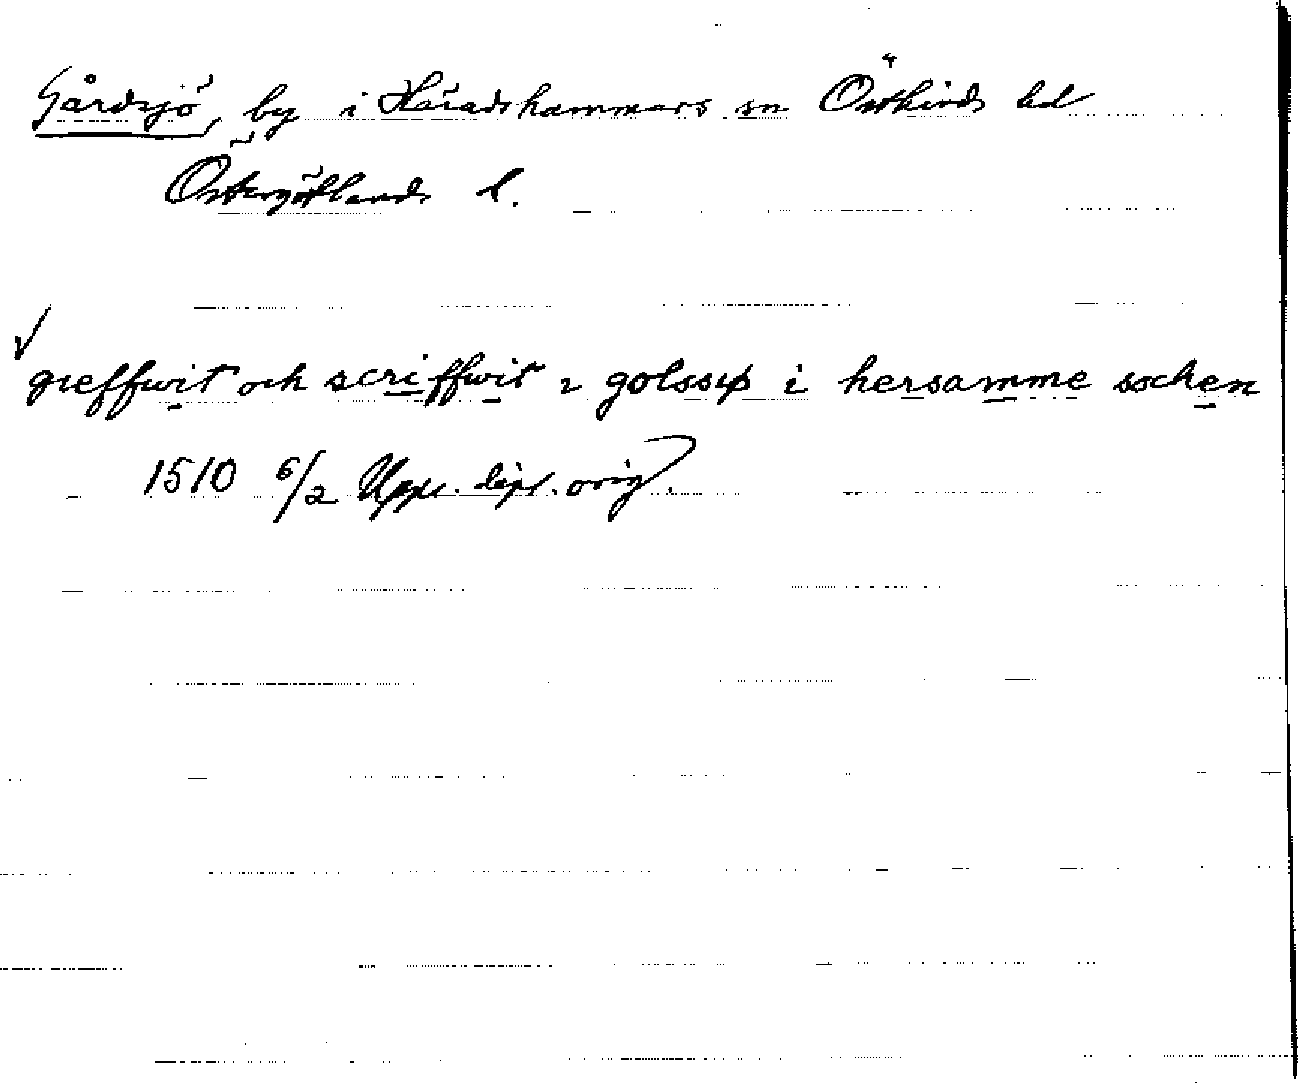 Gårdsjö, by i Häradshammars sn Östkinds hd
Östergötlands l.
√
greffwit och scriffwit i golssiø i hersamme sochen
1510 6/2 Upps. dipl. orig.